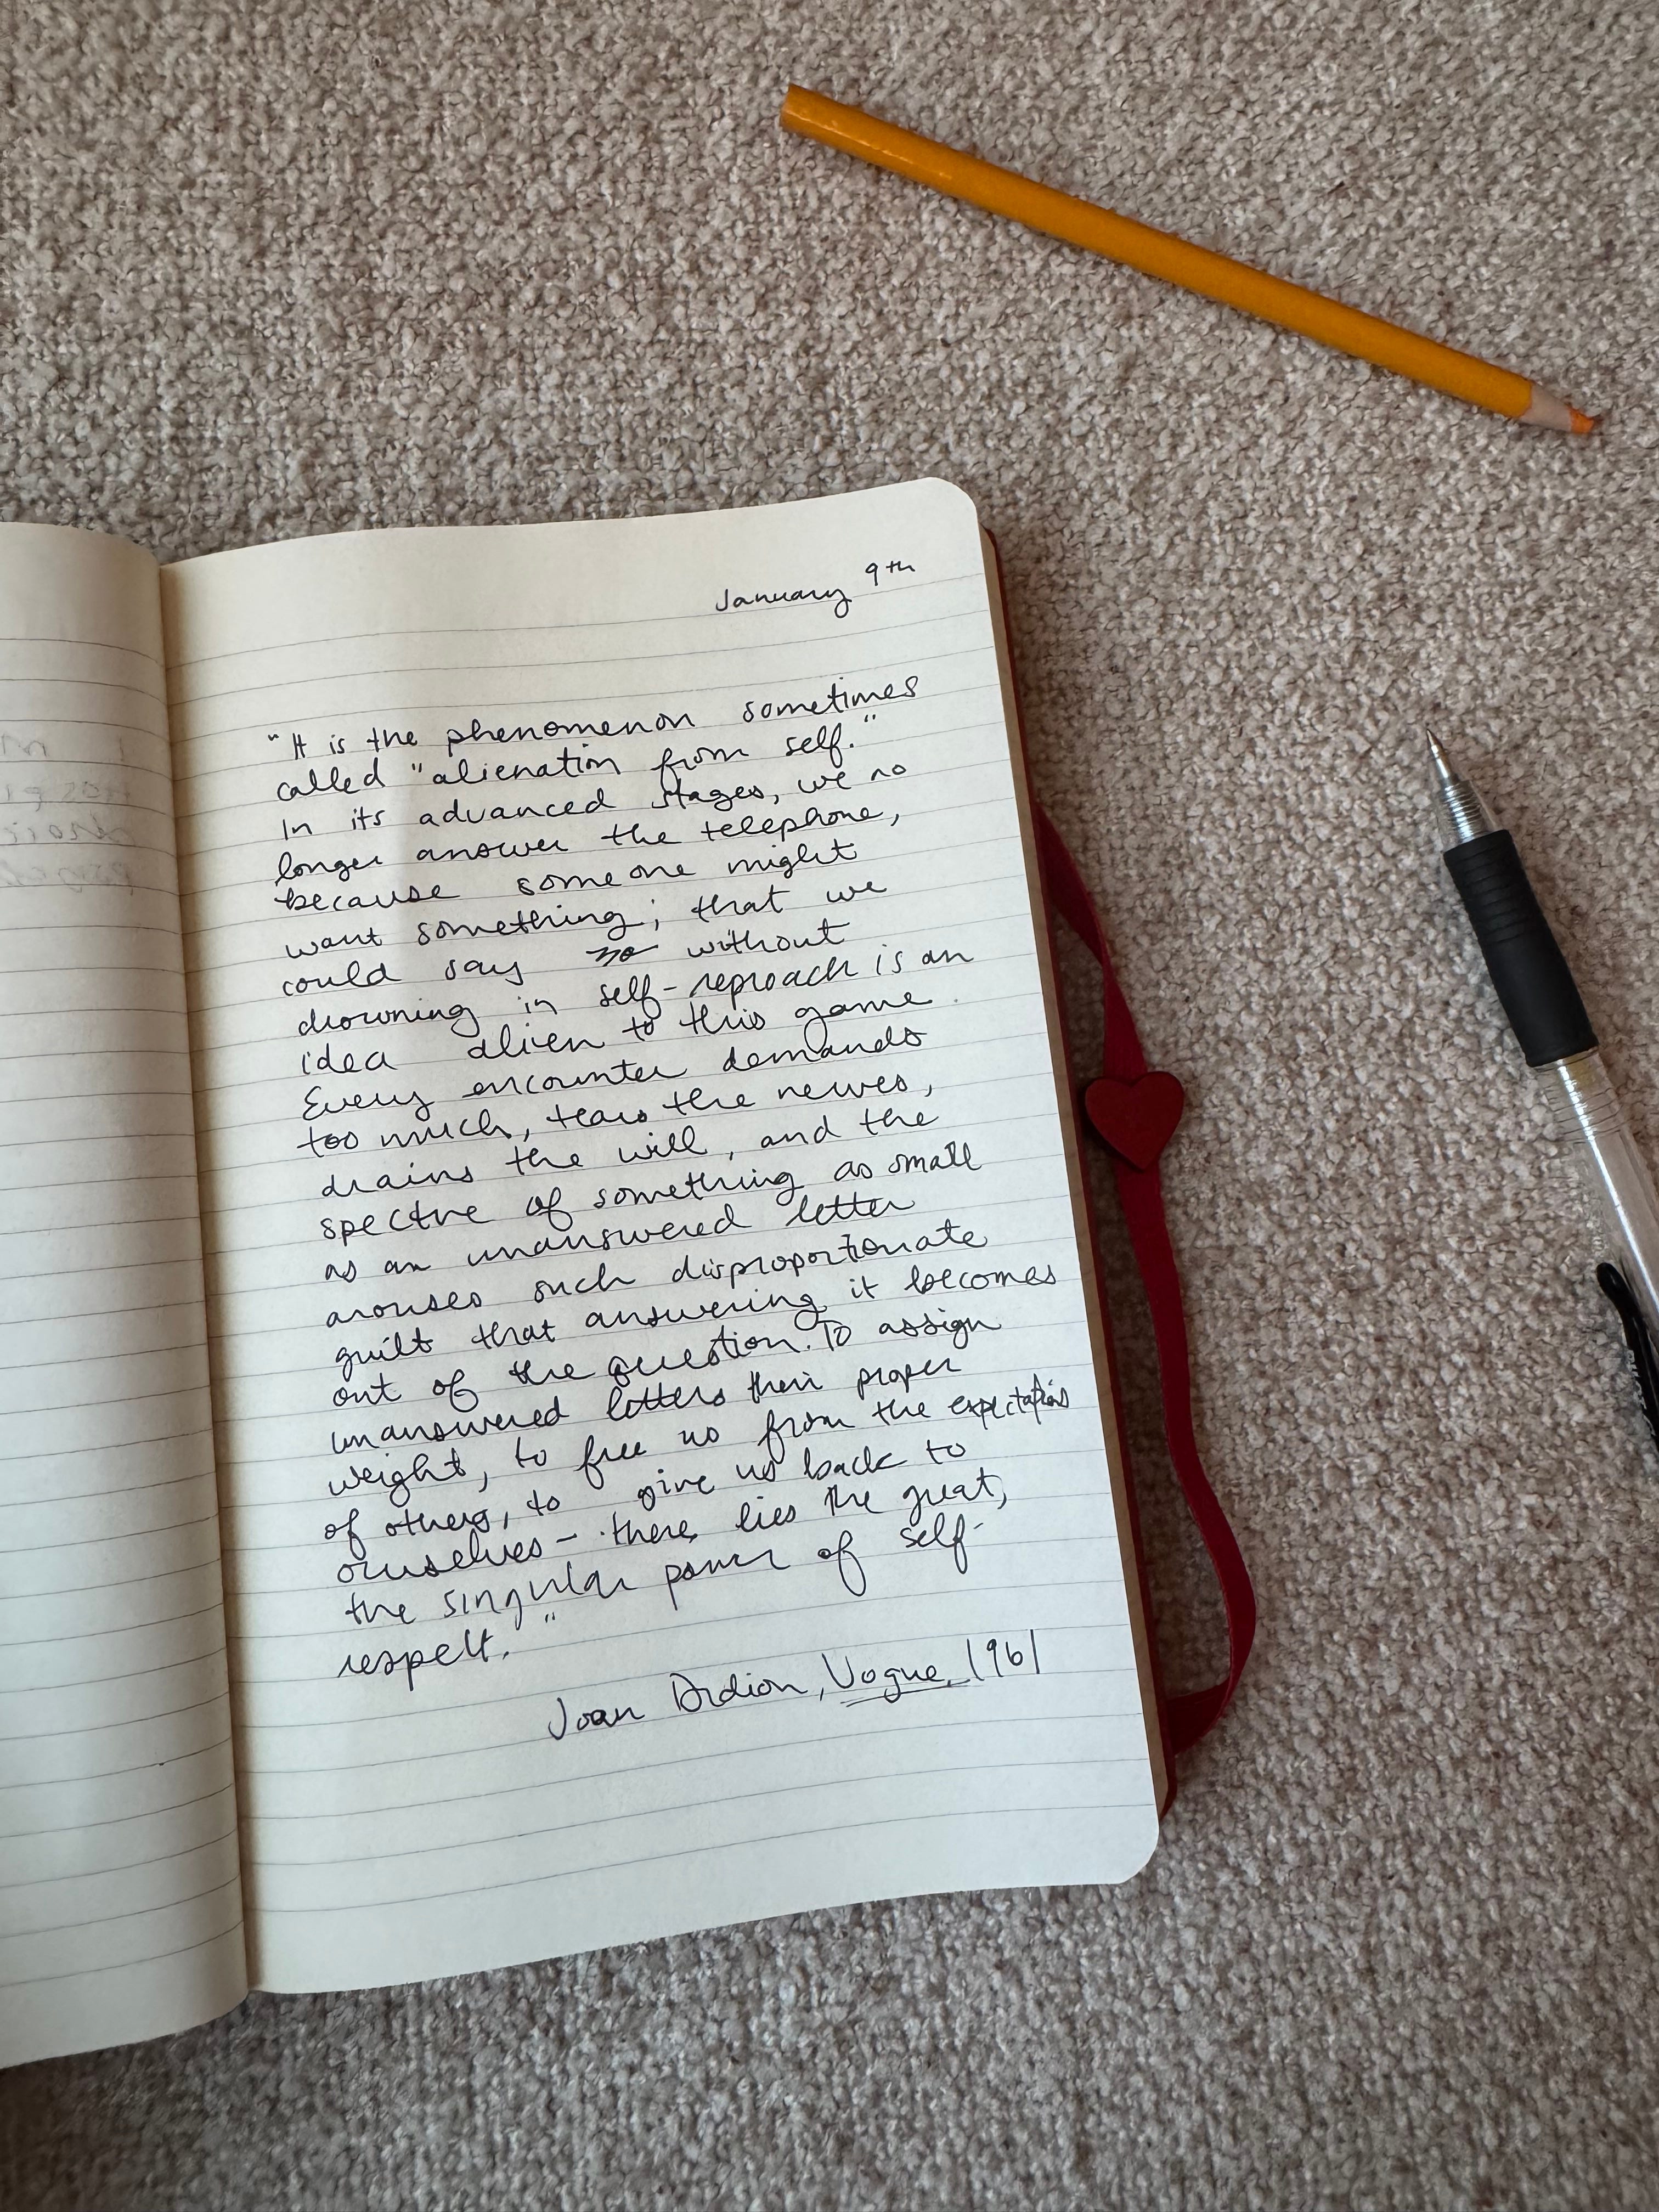 January 9th
"It is the phenomenon sometimes
called "alienation from self."
In its advanced stages, we no
longer answer the telephone,
because someone might
want something; that we
could say no without
drowning in self-reproach is an
idea alien to this game.
Every encounter demands
too much, tears the nerves,
drains the will, and the
spectre of something as small
as an unanswered letter
arouses such disproportionate
guilt that answering it becomes
out of the question. To assign
unanswered letters their proper
weight, to free us from the expectations
of others, to give us back to
ourselves - there lies the great,
the singular power of self-
respect."
Joan Didion, Vogue, 1961